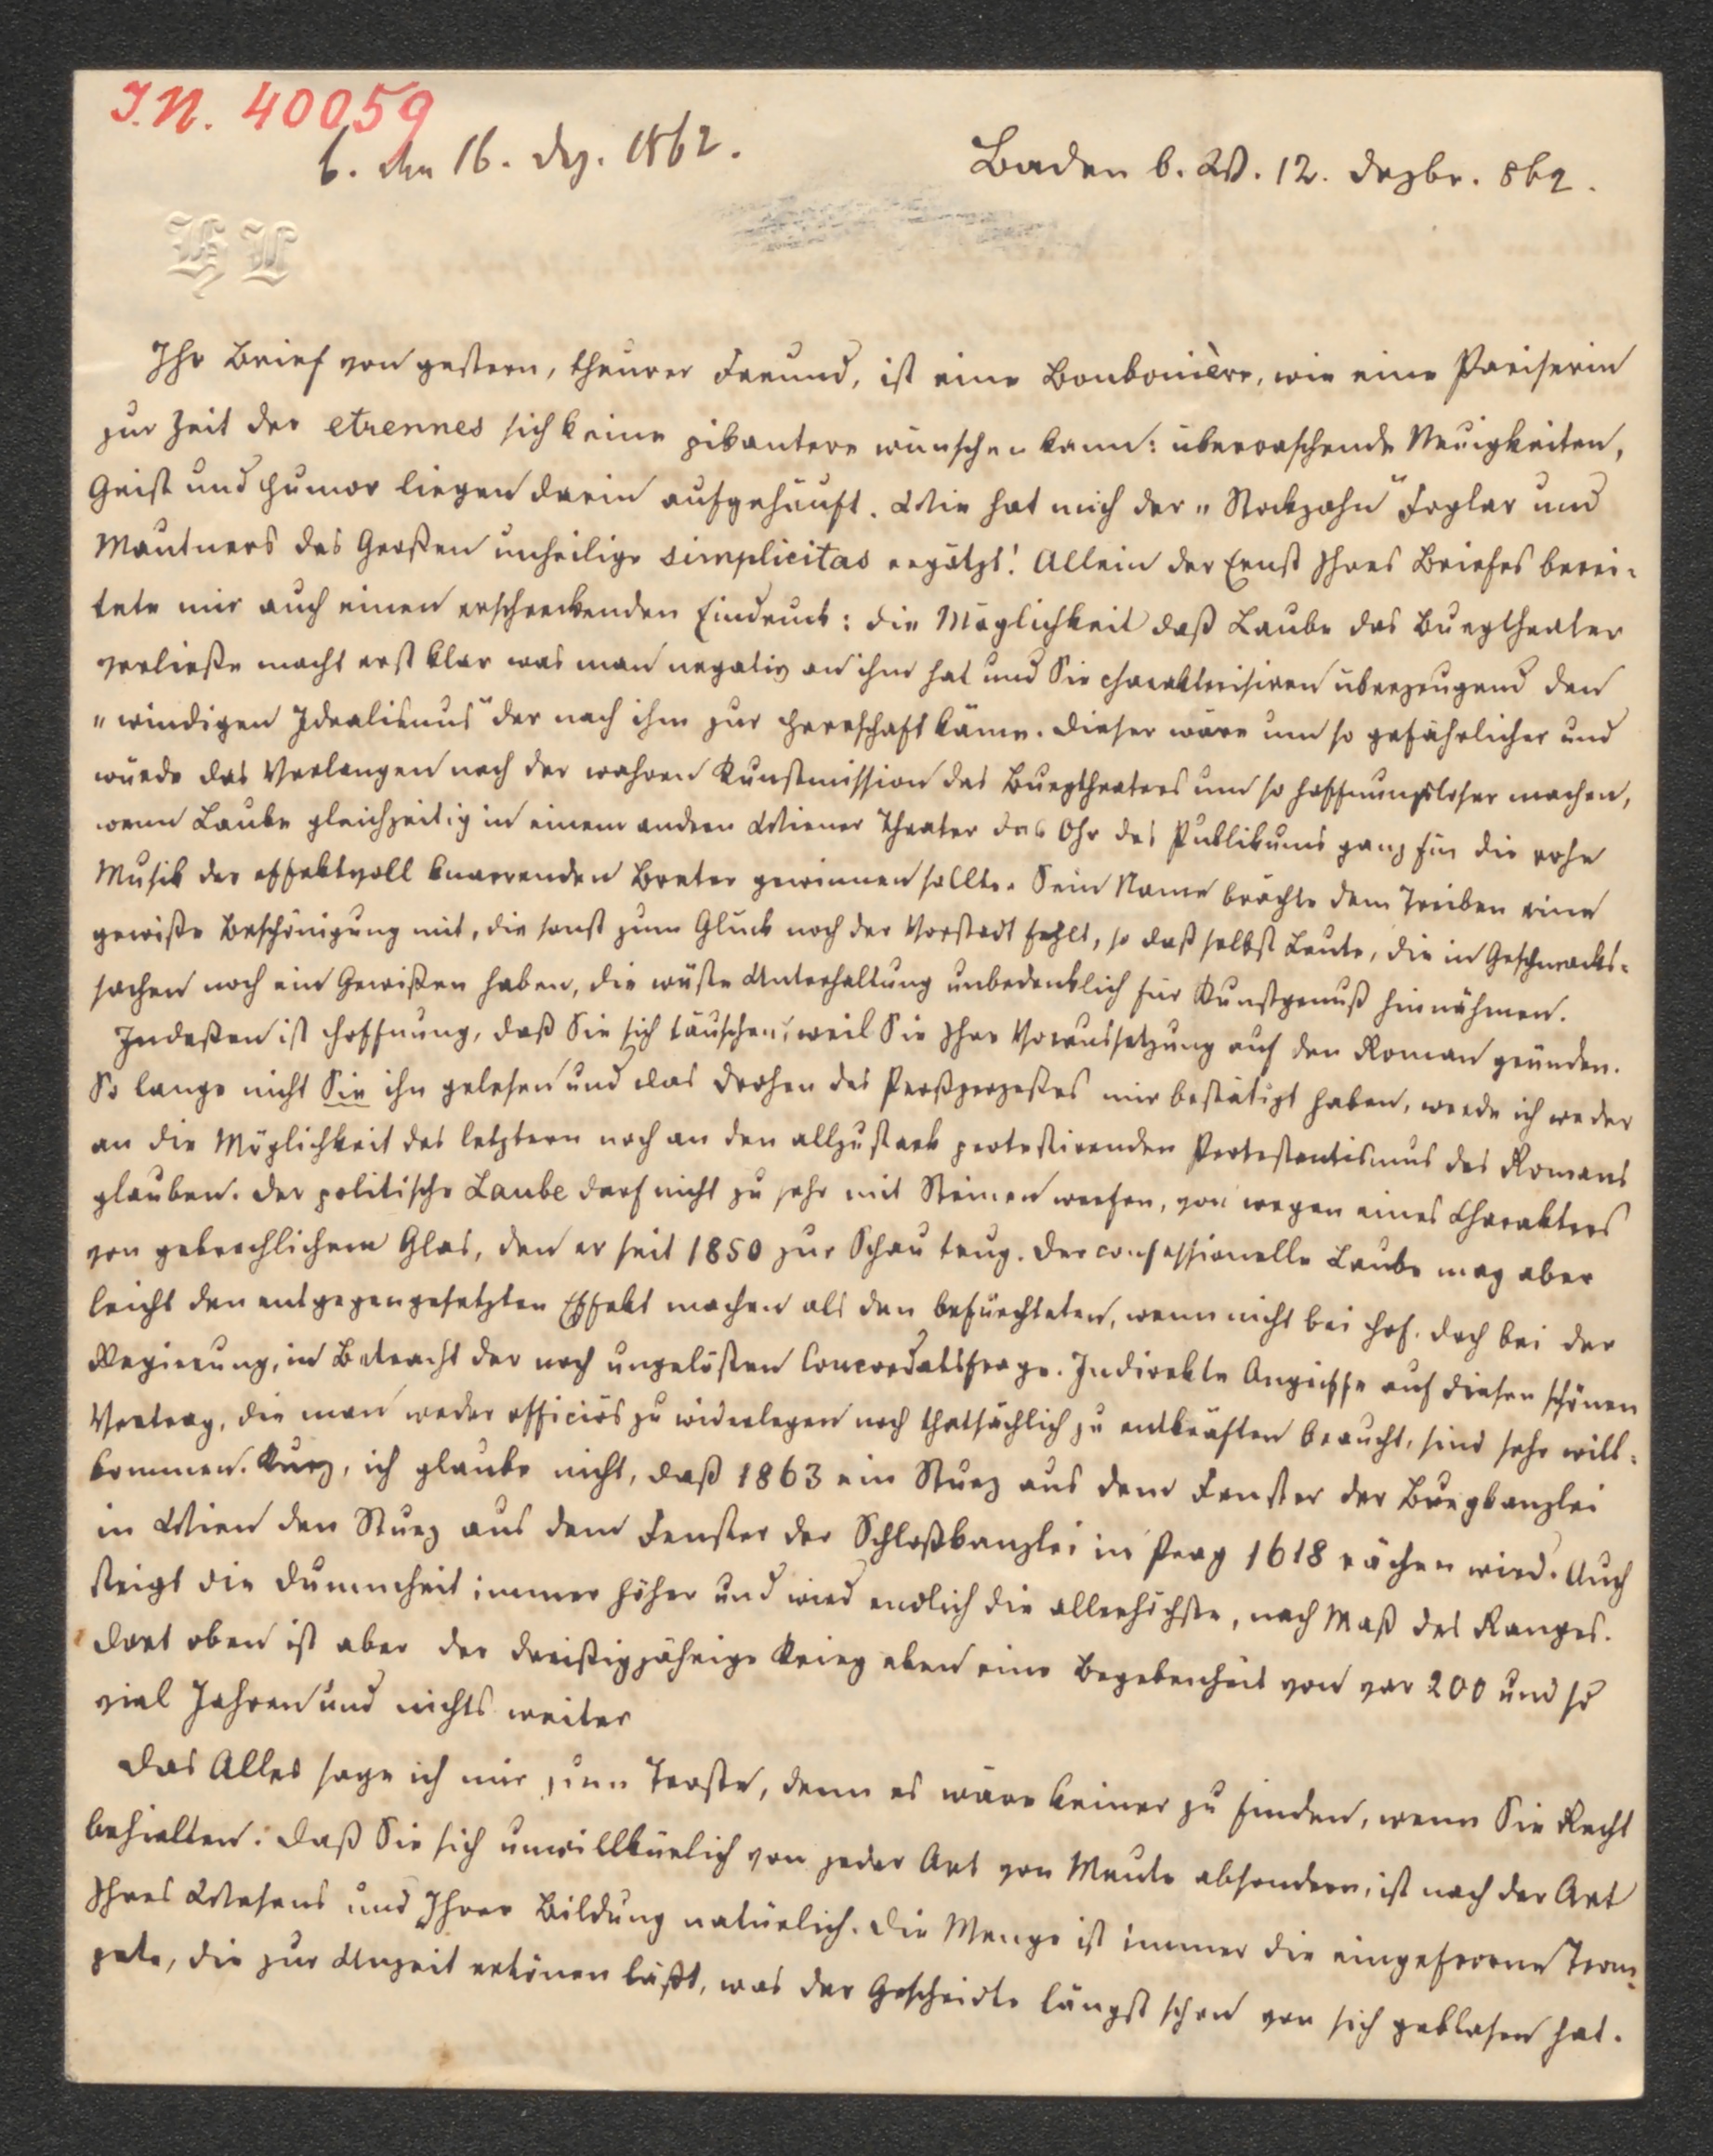 I.N. 40059
b. den 16. Dez. 1862.
Baden b. W. 12. Dezbr. 862.
HL
Ihr Brief von gestern, theurer Freund, ist eine Bonbonière, wie eine Pariserin
zur Zeit der etrennes sich keine pikantere wünschen kann: überraschende Neuigkeiten,
Geist und Humor liegen darin aufgehäuft. Wie hat mich der „Stockzahn" Foglar und
Mautners des Großen unheilige simplicitas ergötzt! Allein der Ernst Ihres Briefes berei-
tete mir auch einen erschreckenden Eindruck: die Möglichkeit daß Laube das Burgtheater
verließe macht erst klar was man negativ an ihm hat und Sie charakterisiren überzeugend den
„windigen Idealismus" der nach ihm zur Herrschaft käme. Dieser wäre um so gefährlicher und
würde das Verlangen nach der wahren Kunstmission des Burgtheaters um so hoffnungsloser machen,
wenn Laube gleichzeitig in einem andren Wiener Theater das Ohr des Publikums ganz für die rohe
Musik der effektvoll knarrenden Breter gewinnen sollte. Sein Name brächte dem Treiben eine
gewiße Beschönigung mit, die sonst zum Glück noch der Vorstadt fehlt, so daß selbst Leute, die in Geschmacks-
sachen noch ein Gewißen haben, die wüste Unterhaltung unbedenklich für Kunstgenuß hinnähmen.
Indeßen ist Hoffnung, daß Sie sich täuschen, weil Sie Ihre Voraussetzung auf den Roman gründen.
So lange nicht Sie ihn gelesen und das Drohen des Preßprozeßes mir bestätigt haben, werde ich weder
an die Möglichkeit des letztern noch an den allzustark protestirenden Protestantismus des Romans
glauben. Der politische Laube darf nicht zu sehr mit Steinen werfen, von wegen eines Charakters
von gebrechlichem Glas, den er seit 1850 zur Schau trug. Der confessionelle Laube mag aber
leicht den entgegengesetzten Effekt machen als den befürchteten, wenn nicht bei Hof, doch bei der
Regierung, in Betracht der noch ungelösten Concordatsfrage. Indirekte Angriffe auf diesen schönen
Vertrag, die man weder officiös zu widerlegen noch thatsächlich zu entkräften braucht, sind sehr will-
kommen. Kurz, ich glaube nicht, daß 1863 ein Sturz aus dem Fenster der Burgkanzlei
in Wien den Sturz aus dem Fenster der Schloßkanzlei in Prag 1618 rächen wird. Auch
steigt die Dummheit immer höher und wird endlich die allerhöchste, nach Maß des Ranges.
Dort oben ist aber der dreißigjährige Krieg eben eine Begebenheit von vor 200 und so
viel Jahren und nichts weiter
Das Alles sage ich mir zum Troste, denn es wäre keiner zu finden, wenn Sie Recht
behielten. Daß Sie sich unwillkürlich von jeder Art von Meute absondern, ist nach der Art
Ihres Wesens und Ihrer Bildung natürlich. Die Menge ist immer die eingefrorne Trom-
pete, die zur Unzeit ertönen läßt, was der Gescheidte längst schon von sich geblasen hat.